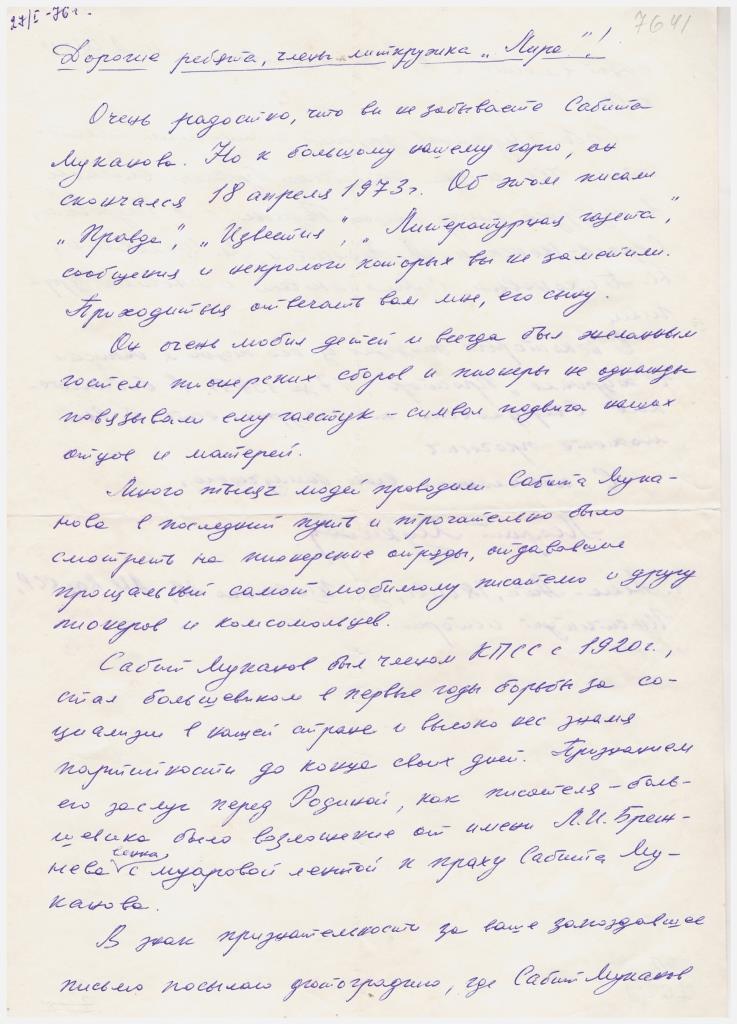 27/I-76г.
7641
Дорогие ребята, члены литкружка „Лира"!
Очень радостно, что вы не забываете Сабита
Муканова. Но к большому нашему горю, он
скончался 18 апреля 1973г. Об этом писали
„Правда", „Известия", „Литературная газета",
сообщения и некрологи которых вы не заметили.
Приходится отвечать вам мне, его сыну.
Он очень любил детей и всегда был желанным
гостем пионерских сборов и пионеры не однажды
повязывали ему галстук - символ подвига наших
отцов и матерей.
Много тысяч людей проводили Сабита Мука-
нова в последний путь и трогательно было
смотреть на пионерские отряды, отдававшие
прощальный салют любимому писателю и другу
пионеров и комсомольцев.
Сабит Муканов был членом КПСС с 1920г.,
стал большевиком в первые годы борьбы за со-
циализм в нашей стране и высоко нес знамя
партийности до конца своих дней. Признанием
его заслуг перед Родиной, как писателя-боль-
шевика было возложение от имени Л.И. Бреж-
нева венка с муаровой лентой к праху Сабита Му-
канова.
В знак признательности за ваше запоздавшее
письмо посылаю фотографию, где Сабит Муканов